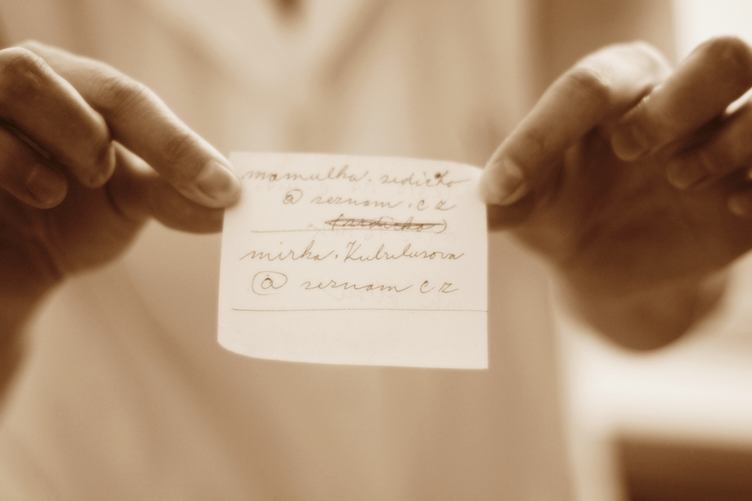 mamulka.sedicko
@ seznam.cz
mirka.Kubelusova
@ seznam cz